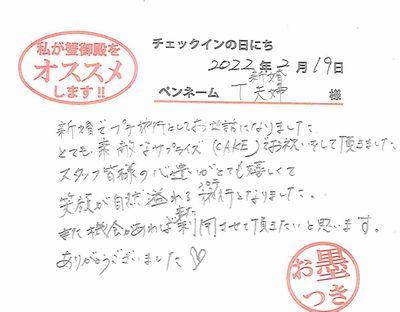 私が蟹御殿を
オススメ
します!!
チェックインの日にち
2022年2月19日
ペンネーム T新婚夫婦 様
新婚でプチ旅行としてお世話になりました
とても素敵なサプライズ(CAKE)でお祝いをして頂きました
スタッフ皆様の心遣いがとても嬉しくて
笑顔が自然溢れる旅行となりました。
また機会があれば利用させて頂きたいと思います。
ありがとうございました♡
お墨
つき